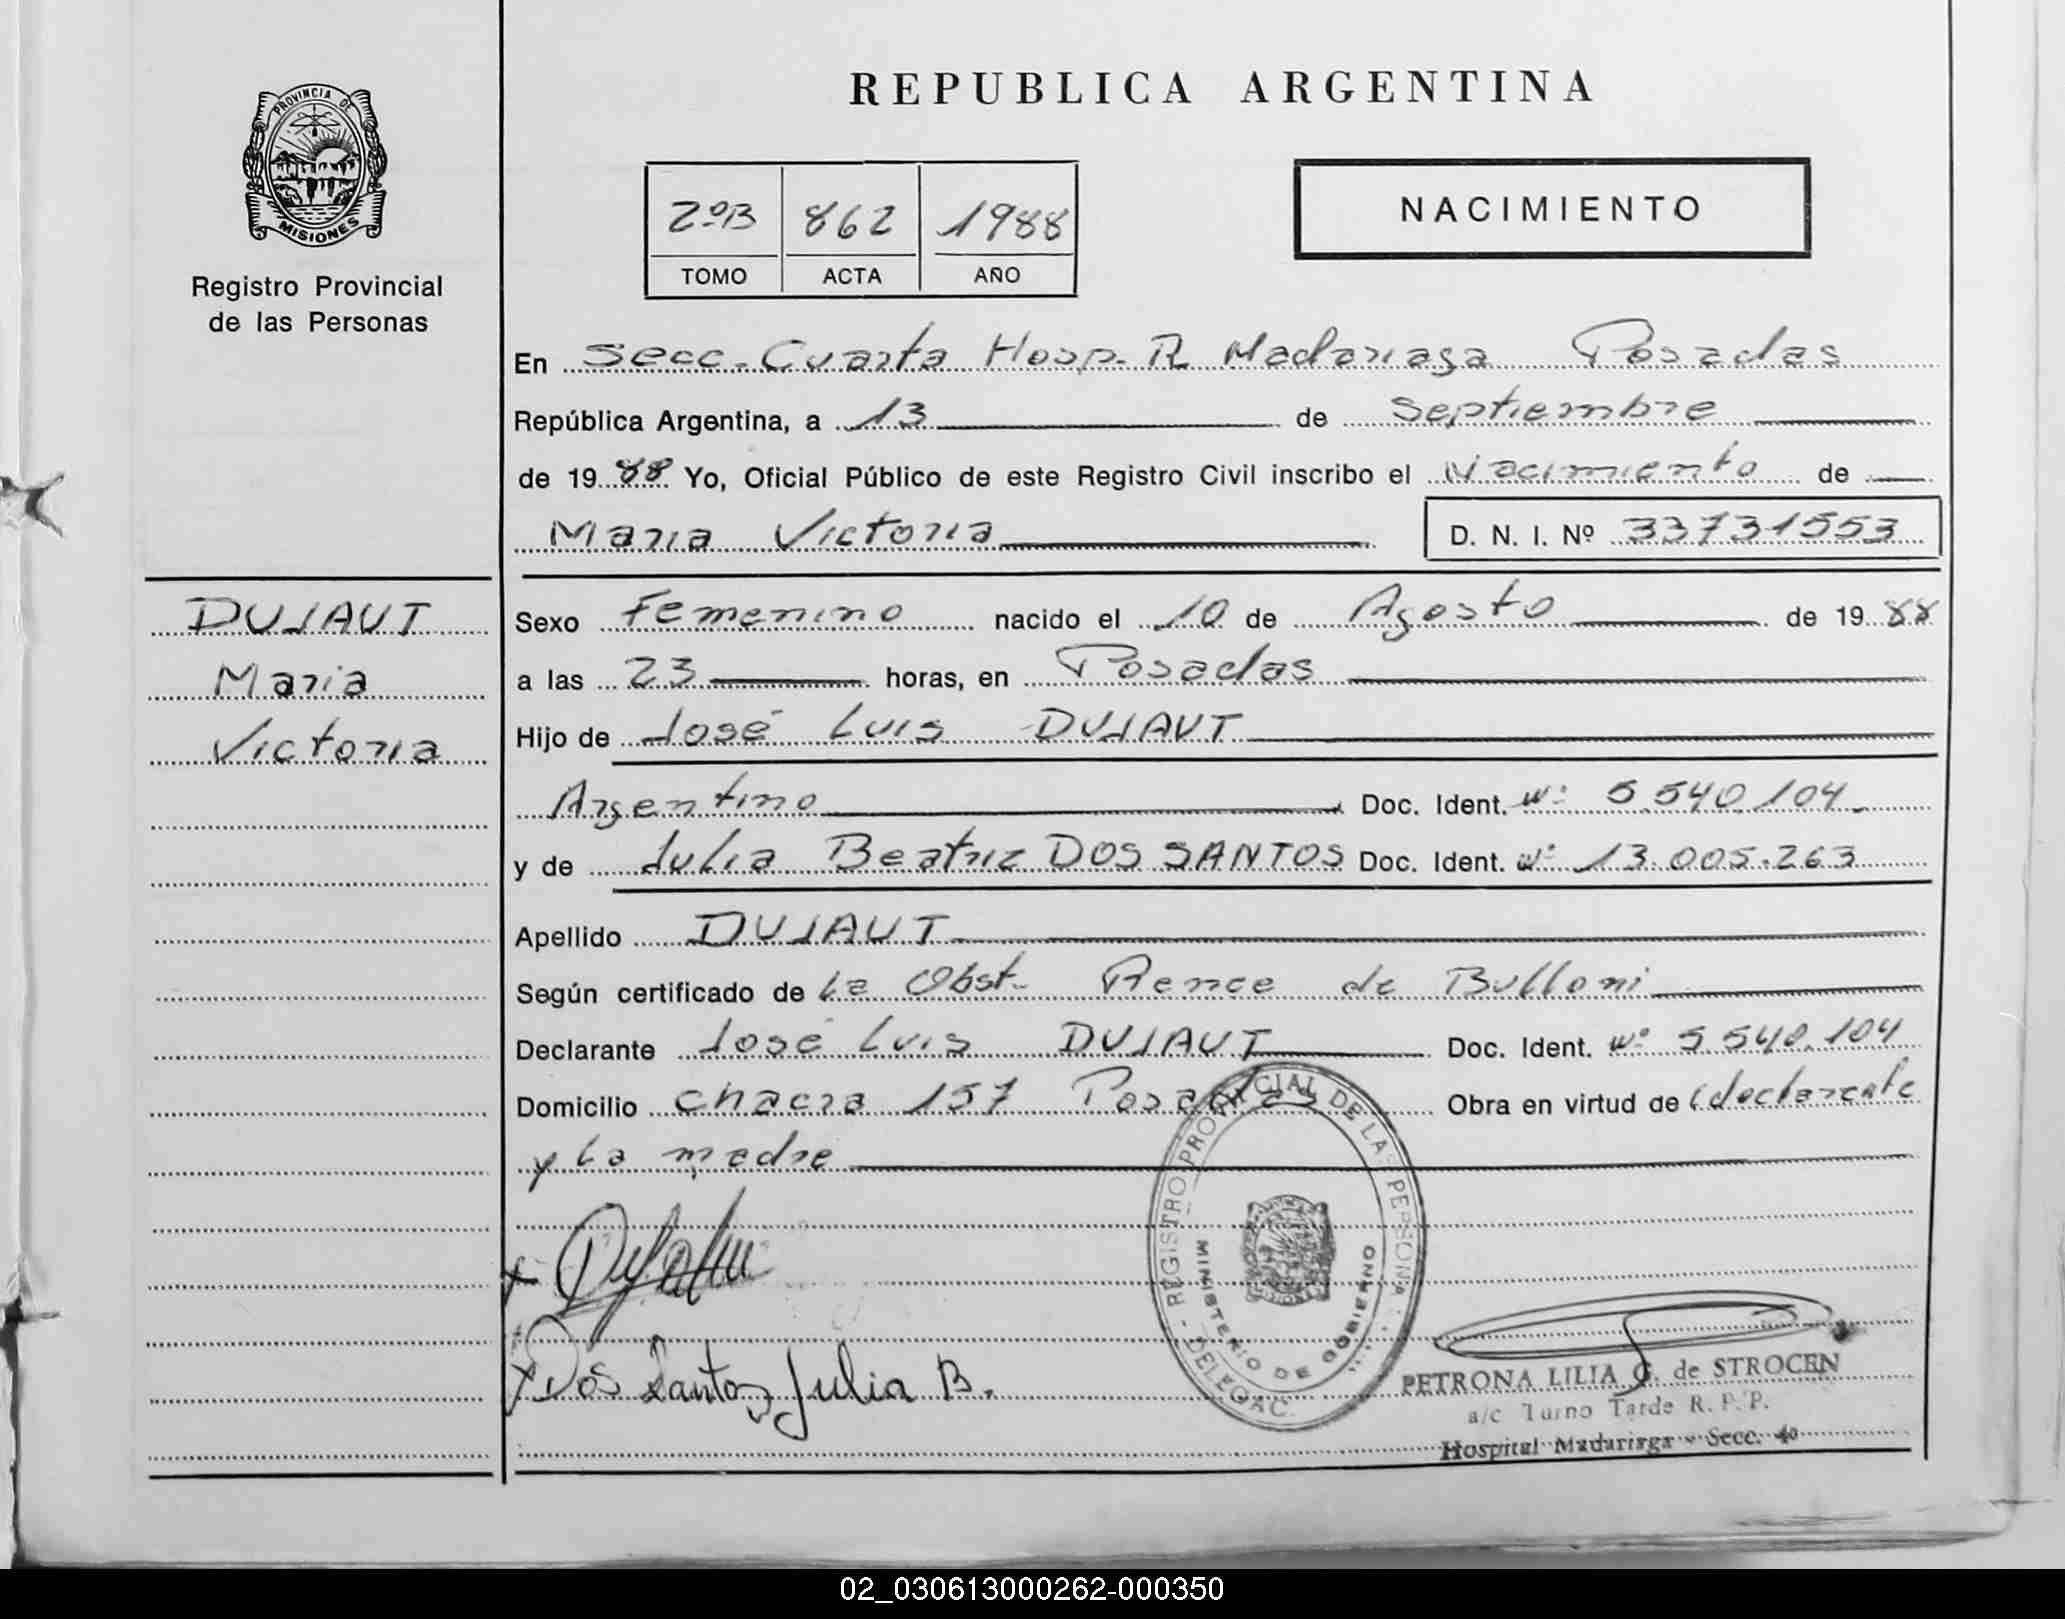 PROVINCIA DE
MISIONES
Registro Provincial
de las Personas
REPUBLICA ARGENTINA
2ºB 862 1988
TOMO ACTA AÑO
NACIMIENTO
En Secc. Cuarta Hosp. R Madariaga Posadas
República Argentina, a 13 de Septiembre
de 1988 Yo, Oficial Público de este Registro Civil inscribo el Nacimiento de
Maria Victoria D. N. I. Nº 33731553
DUJAUT
Maria
Victoria
Sexo Femenino nacido el 10 de Agosto de 1988
a las 23 horas, en Posadas
Hijo de José Luis DUJAUT
Argentino Doc. Ident. Nº 5.540.104
y de Julia Beatriz DOS SANTOS Doc. Ident. Nº 13.005.263
Apellido DUJAUT
Según certificado de La Obst. Renee de Bulloni
Declarante José Luis DUJAUT Doc. Ident. Nº 5.540.104
Domicilio chacra 157 Posadas Obra en virtud de (declarante
y la madre
REGISTRO PROVINCIAL DE LAS PERSONAS
MINISTERIO DE GOBIERNO
DELEGAC.
Dos Santos Julia B.
PETRONA LILIA G. de STROCEN
a/c Turno Tarde R. P. P.
Hospital Madariaga - Secc. 4º
02_030613000262-000350